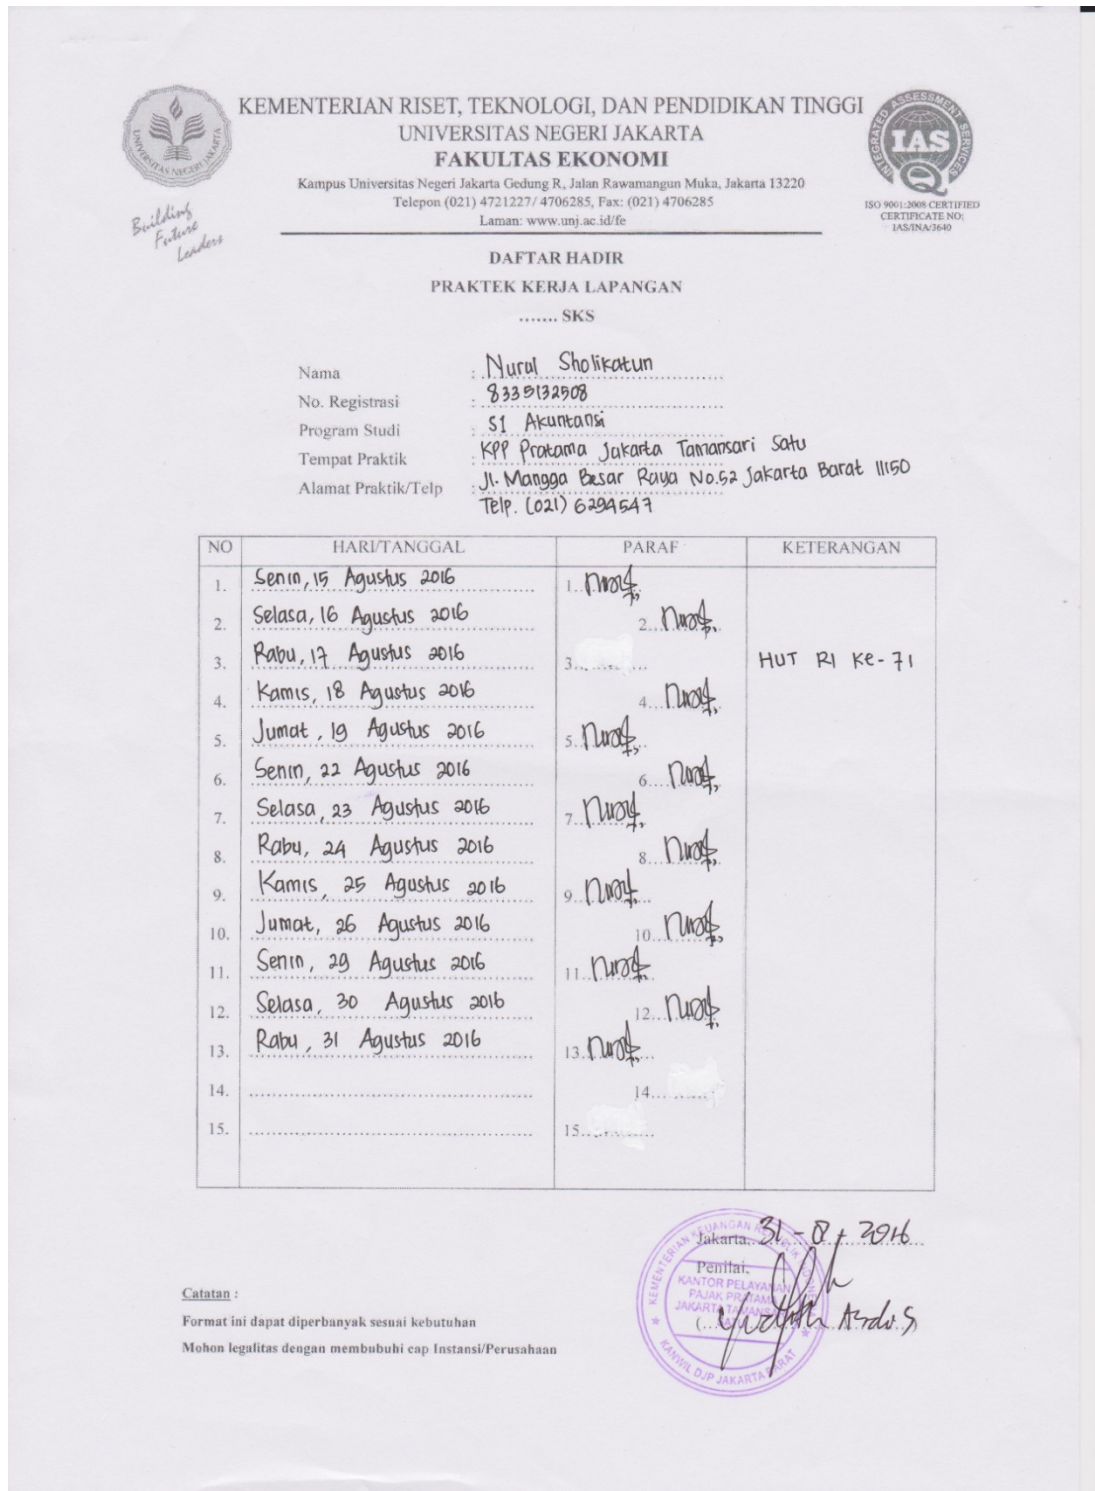 KEMENTERIAN RISET, TEKNOLOGI, DAN PENDIDIKAN TINGGI
UNIVERSITAS NEGERI JAKARTA
FAKULTAS EKONOMI
Kampus Universitas Negeri Jakarta Gedung R, Jalan Rawamangun Muka, Jakarta 13220
Telepon (021) 4721227/ 4706285, Fax: (021) 4706285
Laman: www.unj.ac.id/fe
UNIVERSITAS NEGERI JAKARTA
Building
Future
Leaders
INTEGRATED ASSESSMENT SERVICES
IAS
ISO 9001:2008 CERTIFIED
CERTIFICATE NO:
IAS/INA/3640
DAFTAR HADIR
PRAKTEK KERJA LAPANGAN
....... SKS
Nama : Nurul Sholikatun
No. Registrasi : 8335132508
Program Studi : S1 Akuntansi
Tempat Praktik : KPP Pratama Jakarta Tamansari Satu
Alamat Praktik/Telp : Jl. Mangga Besar Raya No.52 Jakarta Barat 11150
Telp. (021) 6294547
NO HARI/TANGGAL PARAF KETERANGAN
1. Senin, 15 Agustus 2016 1.
2. Selasa, 16 Agustus 2016 2.
3. Rabu, 17 Agustus 2016 3. HUT RI Ke-71
4. Kamis, 18 Agustus 2016 4.
5. Jumat, 19 Agustus 2016 5.
6. Senin, 22 Agustus 2016 6.
7. Selasa, 23 Agustus 2016 7.
8. Rabu, 24 Agustus 2016 8.
9. Kamis, 25 Agustus 2016 9.
10. Jumat, 26 Agustus 2016 10.
11. Senin, 29 Agustus 2016 11.
12. Selasa, 30 Agustus 2016 12.
13. Rabu, 31 Agustus 2016 13.
14. 14.
15. 15.
Jakarta, 31 - 8 - 2016
Penilai,
KEMENTERIAN KEUANGAN REPUBLIK INDONESIA
KANTOR PELAYANAN
PAJAK PRATAMA
JAKARTA TAMANSARI
SATU
KANWIL DJP JAKARTA BARAT
Catatan :
Format ini dapat diperbanyak sesuai kebutuhan
Mohon legalitas dengan membubuhi cap Instansi/Perusahaan